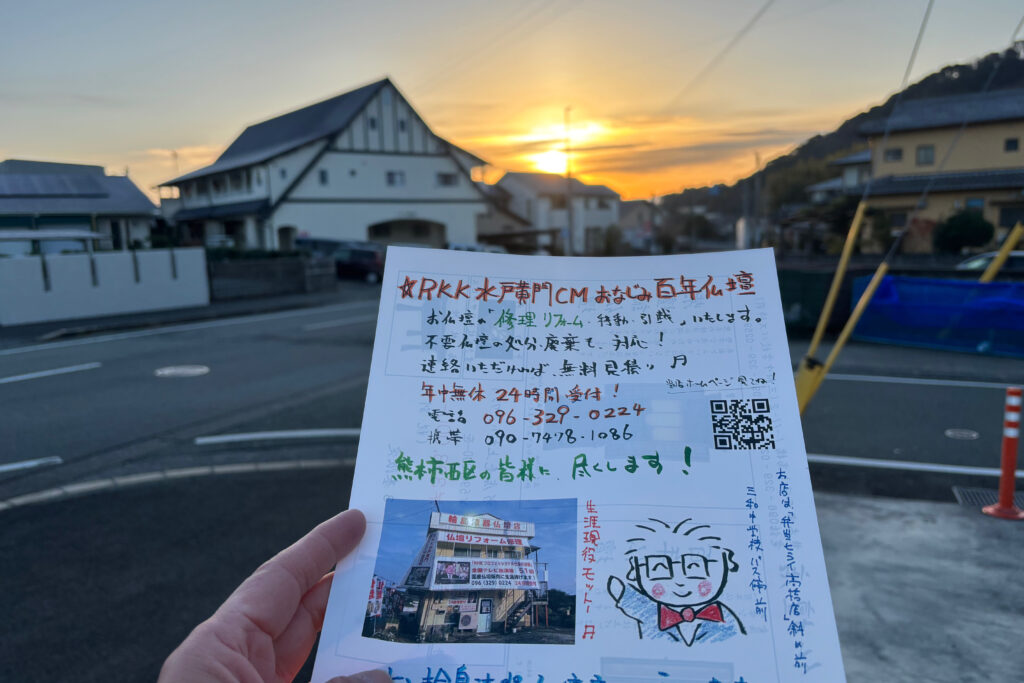 ☆RKK水戸黄門CMおなじみ百年仏壇
お仏壇の「修理リフォーム、移動、引越」いたします。
不要仏壇の処分、廃棄も、対応!
連絡いただければ、無料見積り
年中無休 24時間受付!
当店ホームページ見てね!
電話 096-329-0224
携帯 090-7478-1086
熊本市西区の皆様に尽くします!
輪島漆器仏壇店
仏壇リフォーム修理
096(329)0224
生涯現役モットー!
お店は、「弁当ヒライ高橋店」斜め前
三和中学校バス停前